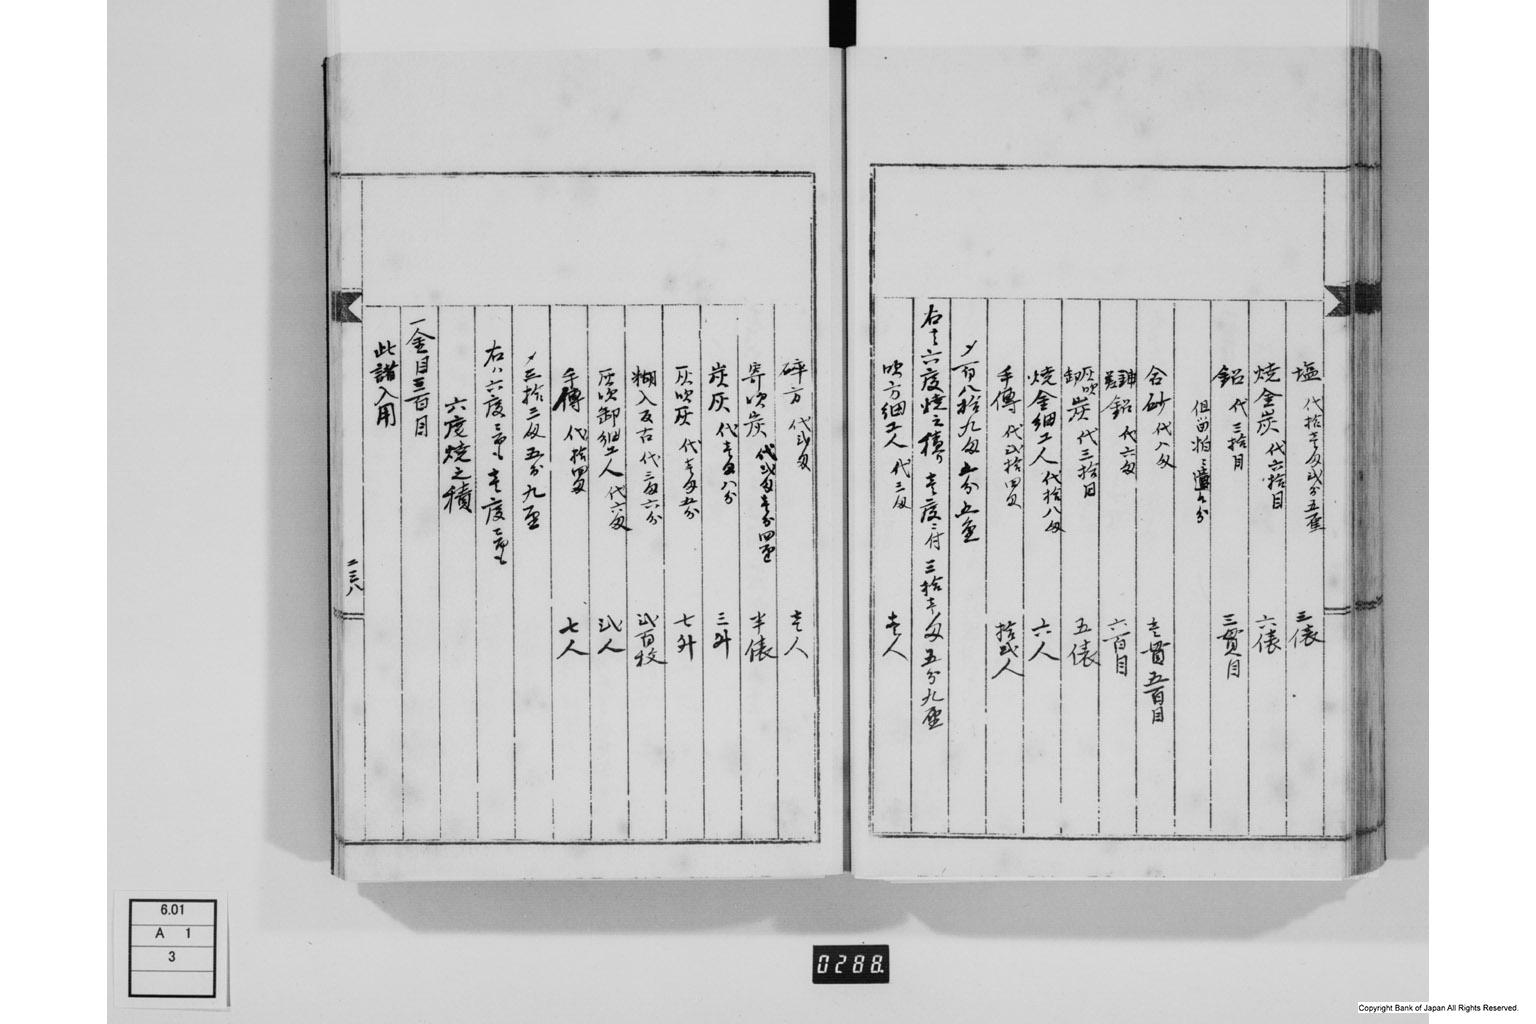 塩 代拾壱匁弐分五厘 三俵
焼金炭 代六拾目 六俵
鉛 代三拾目 三貫目
但留粕
合砂 代八匁 壱貫五百目
鉛 代六匁 六百目
灰吹卸炭 代三拾目 五俵
焼金細工人 代拾八匁 六人
手傳 代弐拾四匁 拾弐人
〆百八拾九匁五分五厘
右者六度焼之積り壱度ニ付三拾壱匁五分九厘
吹方細工人 代三匁 壱人
砕方 代弐匁 壱人
寄吹炭 代弐匁壱分四厘 半俵
炭灰 代壱匁八分 三升
灰吹灰 代壱匁五分 七升
糊入反古 代三匁六分 弐百枚
灰吹卸細工人 代六匁 弐人
手傳 代拾四匁 七人
〆三拾三匁五分九厘
右ハ六度 壱度
六度焼之積
一金目三百目
此諸入用
二三八
6.01
A 1
3
0288.
Copyright Bank of Japan All Rights Reserved.